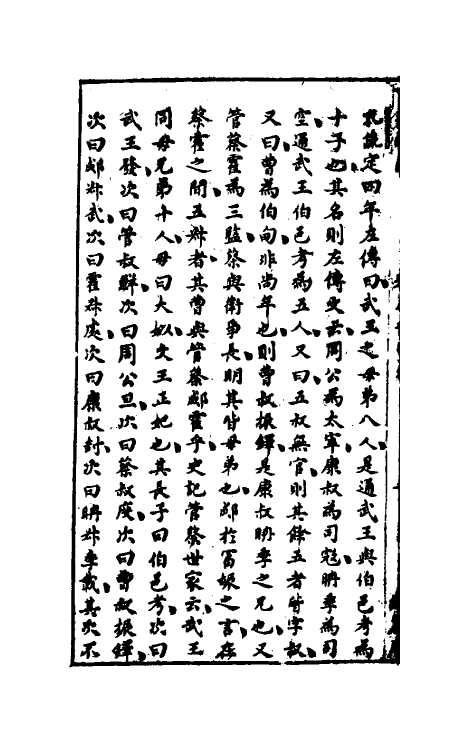 數讓定四年左傳曰武王之母弟八人是通武王與伯邑考為
十子也其名則左傳又云周公為太宰康叔為司寇聃季為司
空通武王伯邑考為五人又曰五叔無官則其餘五者皆字叔
又曰曹為伯甸非尚年也則曹叔振鐸是康叔聃季之兄也又
管蔡霍為三監蔡與衛爭長明其皆母弟也郕於富辰之言在
蔡霍之間五叔者其曹與管蔡郕霍乎史記管蔡世家云武王
同母兄弟十人母曰大姒文王正妃也其長子曰伯邑考次曰
武王發次曰管叔鮮次曰周公旦次曰蔡叔度次曰曹叔振鐸
次曰郕叔武次曰霍叔處次曰康叔封次曰聃叔季載其次不